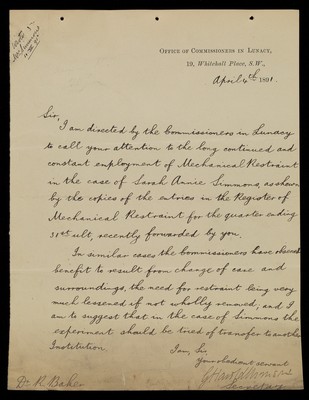 Wrote to
Mr Simmons
OFFICE OF COMMISSIONERS IN LUNACY,
19, Whitehall Place, S.W.,
April 4th 1891.
Sir,
I am directed by the Commissioners in Lunacy
to call your attention to the long continued and
constant employment of Mechanical Restraint
in the case of Sarah Annie Simmons, as shown
by the copies of the entries in the Register of
Mechanical Restraint for the quarter ending
31st ult, recently forwarded by you.
In similar cases the Commissioners have observed
benefit to result from change of care and
surroundings, the need for restraint being very
much lessened if not wholly removed; and I
am to suggest that in the case of Simmons the
experiment should be tried of transfer to another
Institution.
I am, Sir,
Your obedient servant
Secretary
Dr. R. Baker